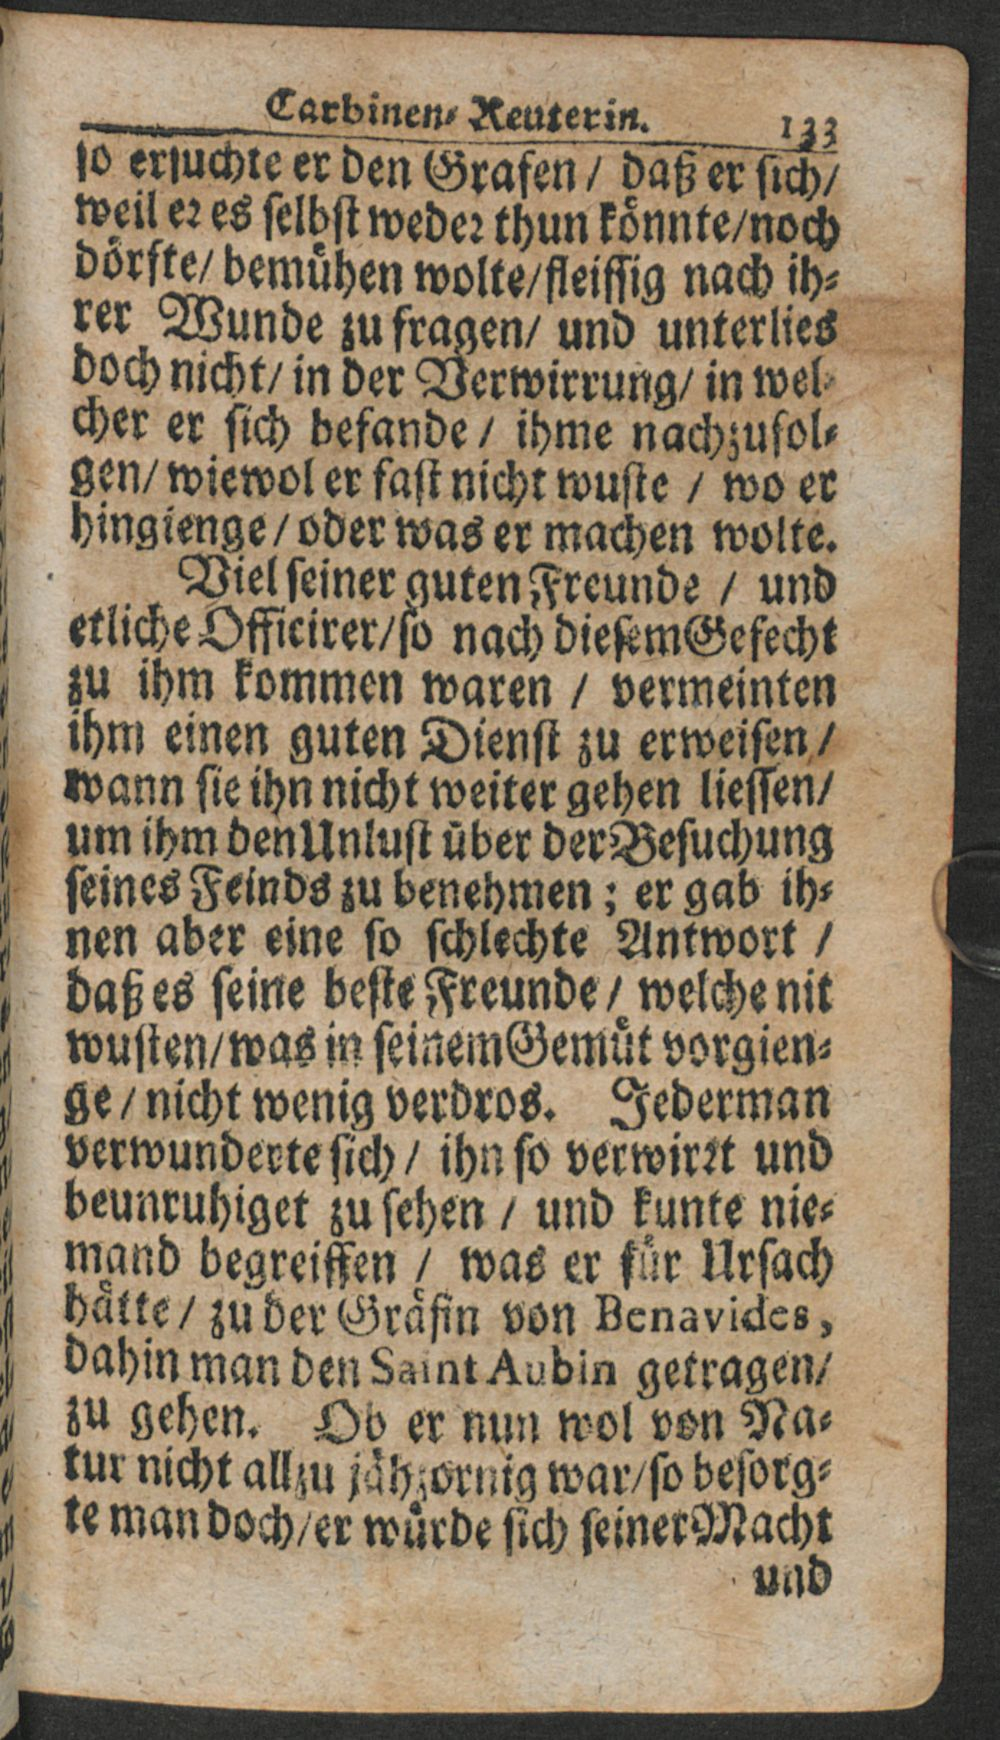 Carbinen-Reuterin. 133
so ersuchte er den Grafen / daß er sich /
weil er es selbst weder thun könnte / noch
dörfte / bemühen wolte / fleissig nach ih-
rer Wunde zu fragen / und unterlies
doch nicht / in der Verwirrung / in wel-
cher er sich befande / ihme nachzufol-
gen / wiewol er fast nicht wuste / wo er
hingienge / oder was er machen wolte.
Viel seiner guten Freunde / und
etliche Officirer / so nach diesem Gefecht
zu ihm kommen waren / vermeinten
ihm einen guten Dienst zu erweisen /
wann sie ihn nicht weiter gehen liessen /
um ihm den Unlust über der Besuchung
seines Feinds zu benehmen ; er gab ih-
nen aber eine so schlechte Antwort /
daß es seine beste Freunde / welche nit
wusten / was in seinem Gemüt vorgien-
ge / nicht wenig verdros. Jederman
verwunderte sich / ihn so verwirrt und
beunruhiget zu sehen / und kunte nie-
mand begreiffen / was er für Ursach
hätte / zu der Gräfin von Benavides,
dahin man den Saint Aubin getragen /
zu gehen. Ob er nun wol von Na-
tur nicht allzu jähzornig war / so besorg-
te man doch / er würde sich seiner Macht
und